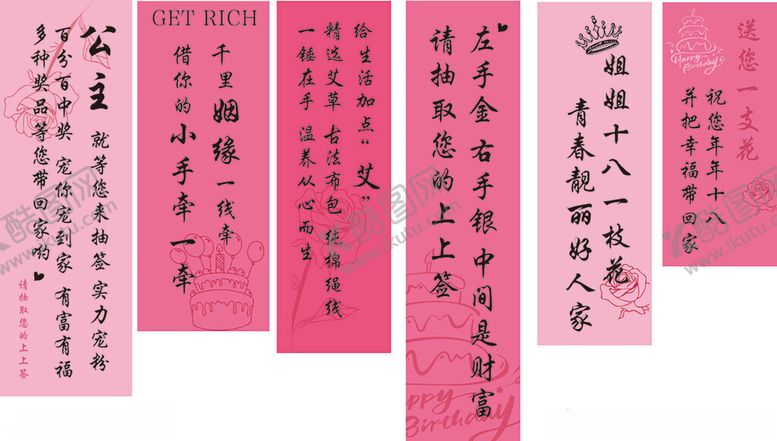 公主
就等您来抽签实力宠粉
百分百中奖 宠你宠到家 有富有福
多种奖品等您带回家哟
请抽取您的上上签
GET RICH
千里姻缘一线牵
借你的小手牵一牵
给生活加点“艾”
精选艾草 古法布包 纯棉绳线
一锤在手 温养从心而生
左手金右手银中间是财富
请抽取您的上上签
Happy
Birthday
姐姐十八一枝花
青春靓丽好人家
Happy
Birthday
送您一支花
祝您年年十八
并把幸福带回家
酷图网
www.ikutu.com
酷图网
www.ikutu.com
酷图网
www.ikutu.com